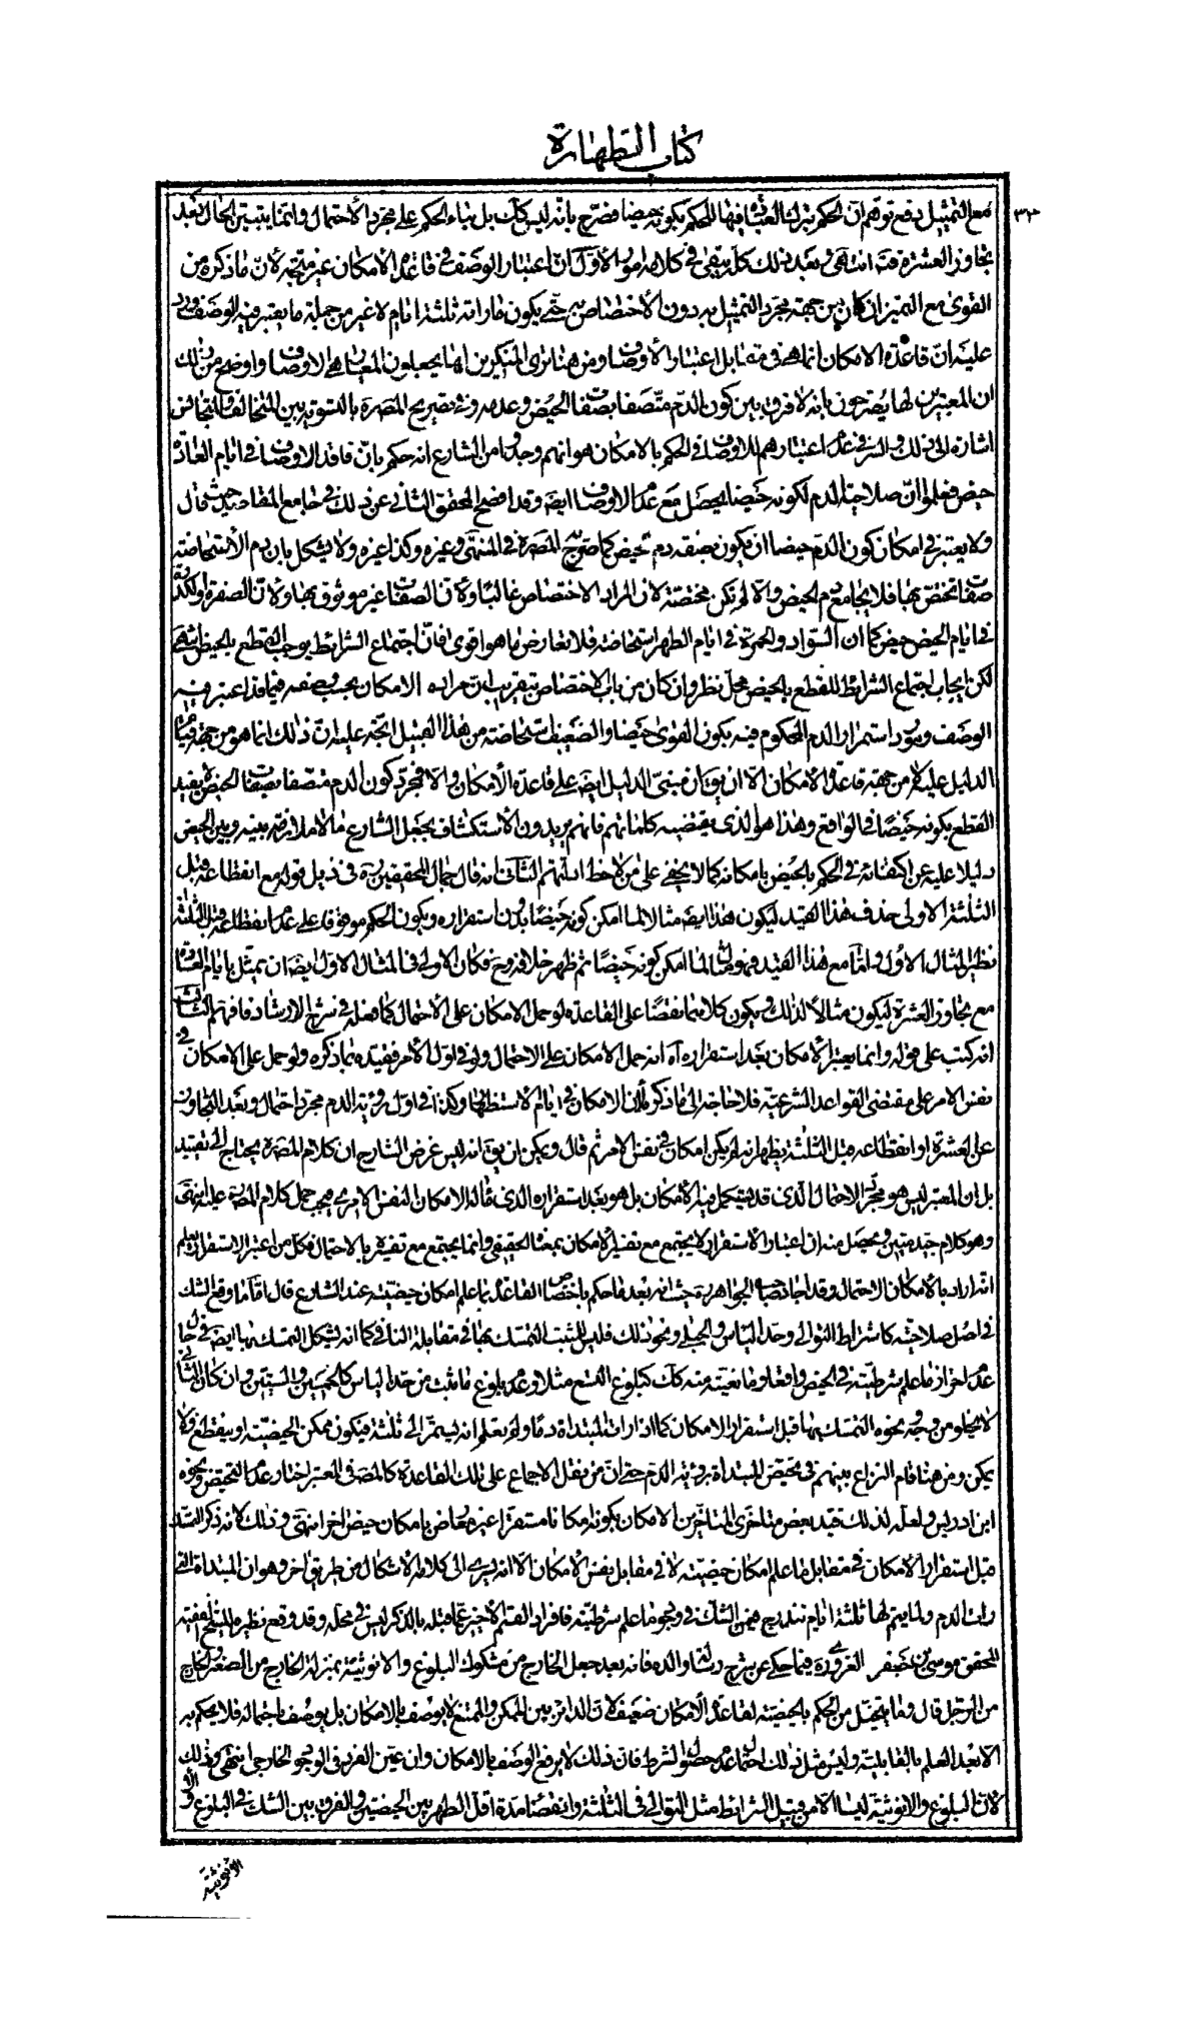 كتاب الطهارة
٣٢
مع التمثيل دفع توهم ان الحكم بترك العبادة فيها للحكم بكونه حيضا فصرح بانه ليس كك بل بناء الحكم على مجرد الاحتمال وانما يتبين الحال بعد
تجاوز العشرة فتم انتهى وبعد ذلك كله يبقى في كلامه امور الاول ان اعتبار الوصف في قاعدة الامكان غير متجه لان ما ذكره من
القوى مع التميز ان كان من جهة مجرد التمثيل به دون الاختصاص به حتى يكون ما راته ثلثة ايام لا غير من جملة ما يعتبر فيه الوصف ورد
عليه ان قاعدة الامكان انما هي في مقابل اعتبار الاوصاف ومن هنا ترى المنكرين لها يجعلون المعيار هي الاوصاف واوضح من ذلك
ان المعتبرين لها يصرحون بانه لا فرق بين كون الدم متصفا بصفات الحيض وعدمه وفي تصريح المصره بالتسوية بين المتخالف والمتجانس
اشارة الى ذلك والسر في عدم اعتبارهم للاوصاف في الحكم بالامكان هو انهم وجدوا من الشارع انه حكم بان فاقد الاوصاف في ايام العادة
حيض فعلموا ان صلاحية الدم لكونه حيضا يحصل مع عدم الاوصاف ايضا وقد افصح المحقق الثاني عن ذلك في جامع المقاصد حيث قال
ولا يعتبر في امكان كون الدم حيضا ان يكون بصفة دم الحيض كما صرح به المصره في المنتهى وغيره وكذا غيره ولا يشكل بان دم الاستحاضة
صفات تختص بها فلا يجامع دم الحيض والا لم تكن مختصة لان المراد الاختصاص غالبا ولان الصفات غير موثوق بها ولان الصفرة والكدرة
في ايام الحيض حيض كما ان السواد والحمرة في ايام الطهر استحاضة فلا تعارض ما هو اقوى فان اجتماع الشرائط يوجب القطع بالحيض انتهى
لكن ايجاب اجتماع الشرائط للقطع بالحيض محل نظر وان كان من باب الاختصاص بتقريب ان مراده الامكان بحسب وصفه فيما قد اعتبر فيه
الوصف وهو استمرار الدم المحكوم فيه بكون القوى حيضا والضعيف استحاضة من هذا القبيل اتجه عليه ان ذلك انما هو من جهة قيام
الدليل عليه لا من جهة قاعدة الامكان الا ان يق ان مبنى الدليل ايضا على قاعدة الامكان والا فمجرد كون الدم متصفا بصفات الحيض لا يفيد
القطع بكونه حيضا في الواقع وهذا هو الذي يقتضيه كلماتهم فانهم يريدون الاستكشاف بجعل الشارع ما لا ملازمة بينه وبين الحيض
دليلا عليه عن اكتفائه في الحكم بالحيض بامكانه كما لا يخفى على من لاحظ ادلتهم الثاني انه قال جمال المحققين ره في ذيل قوله مع انقطاعه قبل
الثلثة الاولى حذف هذا القيد ليكون هذا ايضا مثالا لما امكن كونه حيضا بدون استقراره ويكون الحكم موقوفا على عدم انقطاعه قبل الثلثة
نظير المثال الاول واما مع هذا القيد فهو مثال لما امكن كونه حيضا ثم ظهر خلافه وح فكان الاولى في المثال الاول ايضا ان يمثل بايام العادة
مع تجاوز العشرة ليكون مثالا لذلك ويكون كلاهما نقضا على القاعدة لو حمل الامكان على الاحتمال كما فعله في شرح الارشاد فافهم الثالث
انه كتب على قوله وانما يعتبر الامكان بعد استقراره اه انه حمل الامكان على الاحتمال ولو في اول الامر فقيده بما ذكره ولو حمل على الامكان في
نفس الامر على مقتضى القواعد الشرعية فلا حاجة الى ما ذكره لان الامكان في ايام الاستظهار وكذا في اول رؤية الدم مجرد احتمال وبعد التجاوز
عن العشرة او انقطاعه قبل الثلثة يظهر انه لم يكن امكان في نفس الامر ثم قال ويمكن ان يق انه ليس غرض الشارح ان كلام المصره يحتاج الى تقييد
بل ان المعتبر ليس هو مجرد الاحتمال الذي قد يشكل فيه الامكان بل هو بعد استقراره الذي قاله الامكان النفس الامري فيجب حمل كلام المصره عليه انتهى
وهو كلام جيد متين ومحصل منه ان اعتبار الاستقرار لا يجتمع مع تفسير الامكان بمعناه الحقيقي وانما يجتمع مع تفسيره بالاحتمال فكل من اعتبر الاستقرار يعلم
انه اراد بالامكان الاحتمال وقد اجاد صاحب الجواهر ره حيث انه بعد ما حكم باختصاص القاعدة بما علم امكان حيضيته عند الشارع قال اما ما وقع الشك
في اصل صلاحيته كاشتراط التوالي وحد الياس والحبلى ونحو ذلك فليس للمثبت التمسك بها في مقابلة النافي كما انه يشكل التمسك بها ايضا في حال
عدم احراز ما علم شرطيته في الحيض واقعا وما نعيته منه كك كبلوغ التسع مثلا وعدم بلوغ ما ثبت من حد الياس كالخمسين والستين وان كان الثاني
لا يخلو من وجه نحوه التمسك بها قبل استقرار الامكان كما اذا رات المبتداة دما ولم تعلم انه يستمر الى ثلثة فيكون ممكن الحيضية او ينقطع ولا
يمكن ومن هنا قام النزاع بينهم في تحيض المبتداة برؤية الدم حتى ان من نقل الاجماع على تلك القاعدة كالمص في المعتبر اختار عدم التحيض ونحوه
ابن ادريس ولعله لذلك قيد بعض متاخرى المتاخرين الامكان بكونه امكانا مستقرا غير معارض بامكان حيض اخر انتهى وذلك لانه ذكر التمسك
قبل استقرار الامكان في مقابل ما علم امكان حيضيته لا في مقابل نفس الامكان الا انه يسرى الى كلامه الاشكال من طريق اخر وهو ان المبتداة التي
رات الدم ولما يتم لها ثلثة ايام تندرج فيمن الشك في وجود ما علم شرطيته فافراد القسم الاخير عما قبله بالذكر ليس في محله وقد وقع نظيره للشيخ الفقيه
المحقق موسى بن جعفر الغروي ره فيما حكى عن شرح رسالة والده فانه بعد جعل الخارج من مشكوك البلوغ والانوثية بمنزلة الخارج من الصغيرة والخارج
من الرجل قال وما يتخيل من الحكم بالحيضية لقاعدة الامكان ضعيف لان الدائر بين الممكن والممتنع لا يوصف بالامكان بل يوصف باحتماله فلا يحكم به
الا بعد العلم بالقابلية وليس مثل ذلك احتمال عدم حصول الشرط فان ذلك لا يرفع الوصف بالامكان وان عين الفرد في الوجود الخارجي انتهى وذلك
لان البلوغ والانوثية ليسا الا من قبيل الشرائط مثل التوالي في الثلثة وانقضاء مدة اقل الطهر بين الحيضتين والفرق بين الشك في البلوغ والا
الانوثية